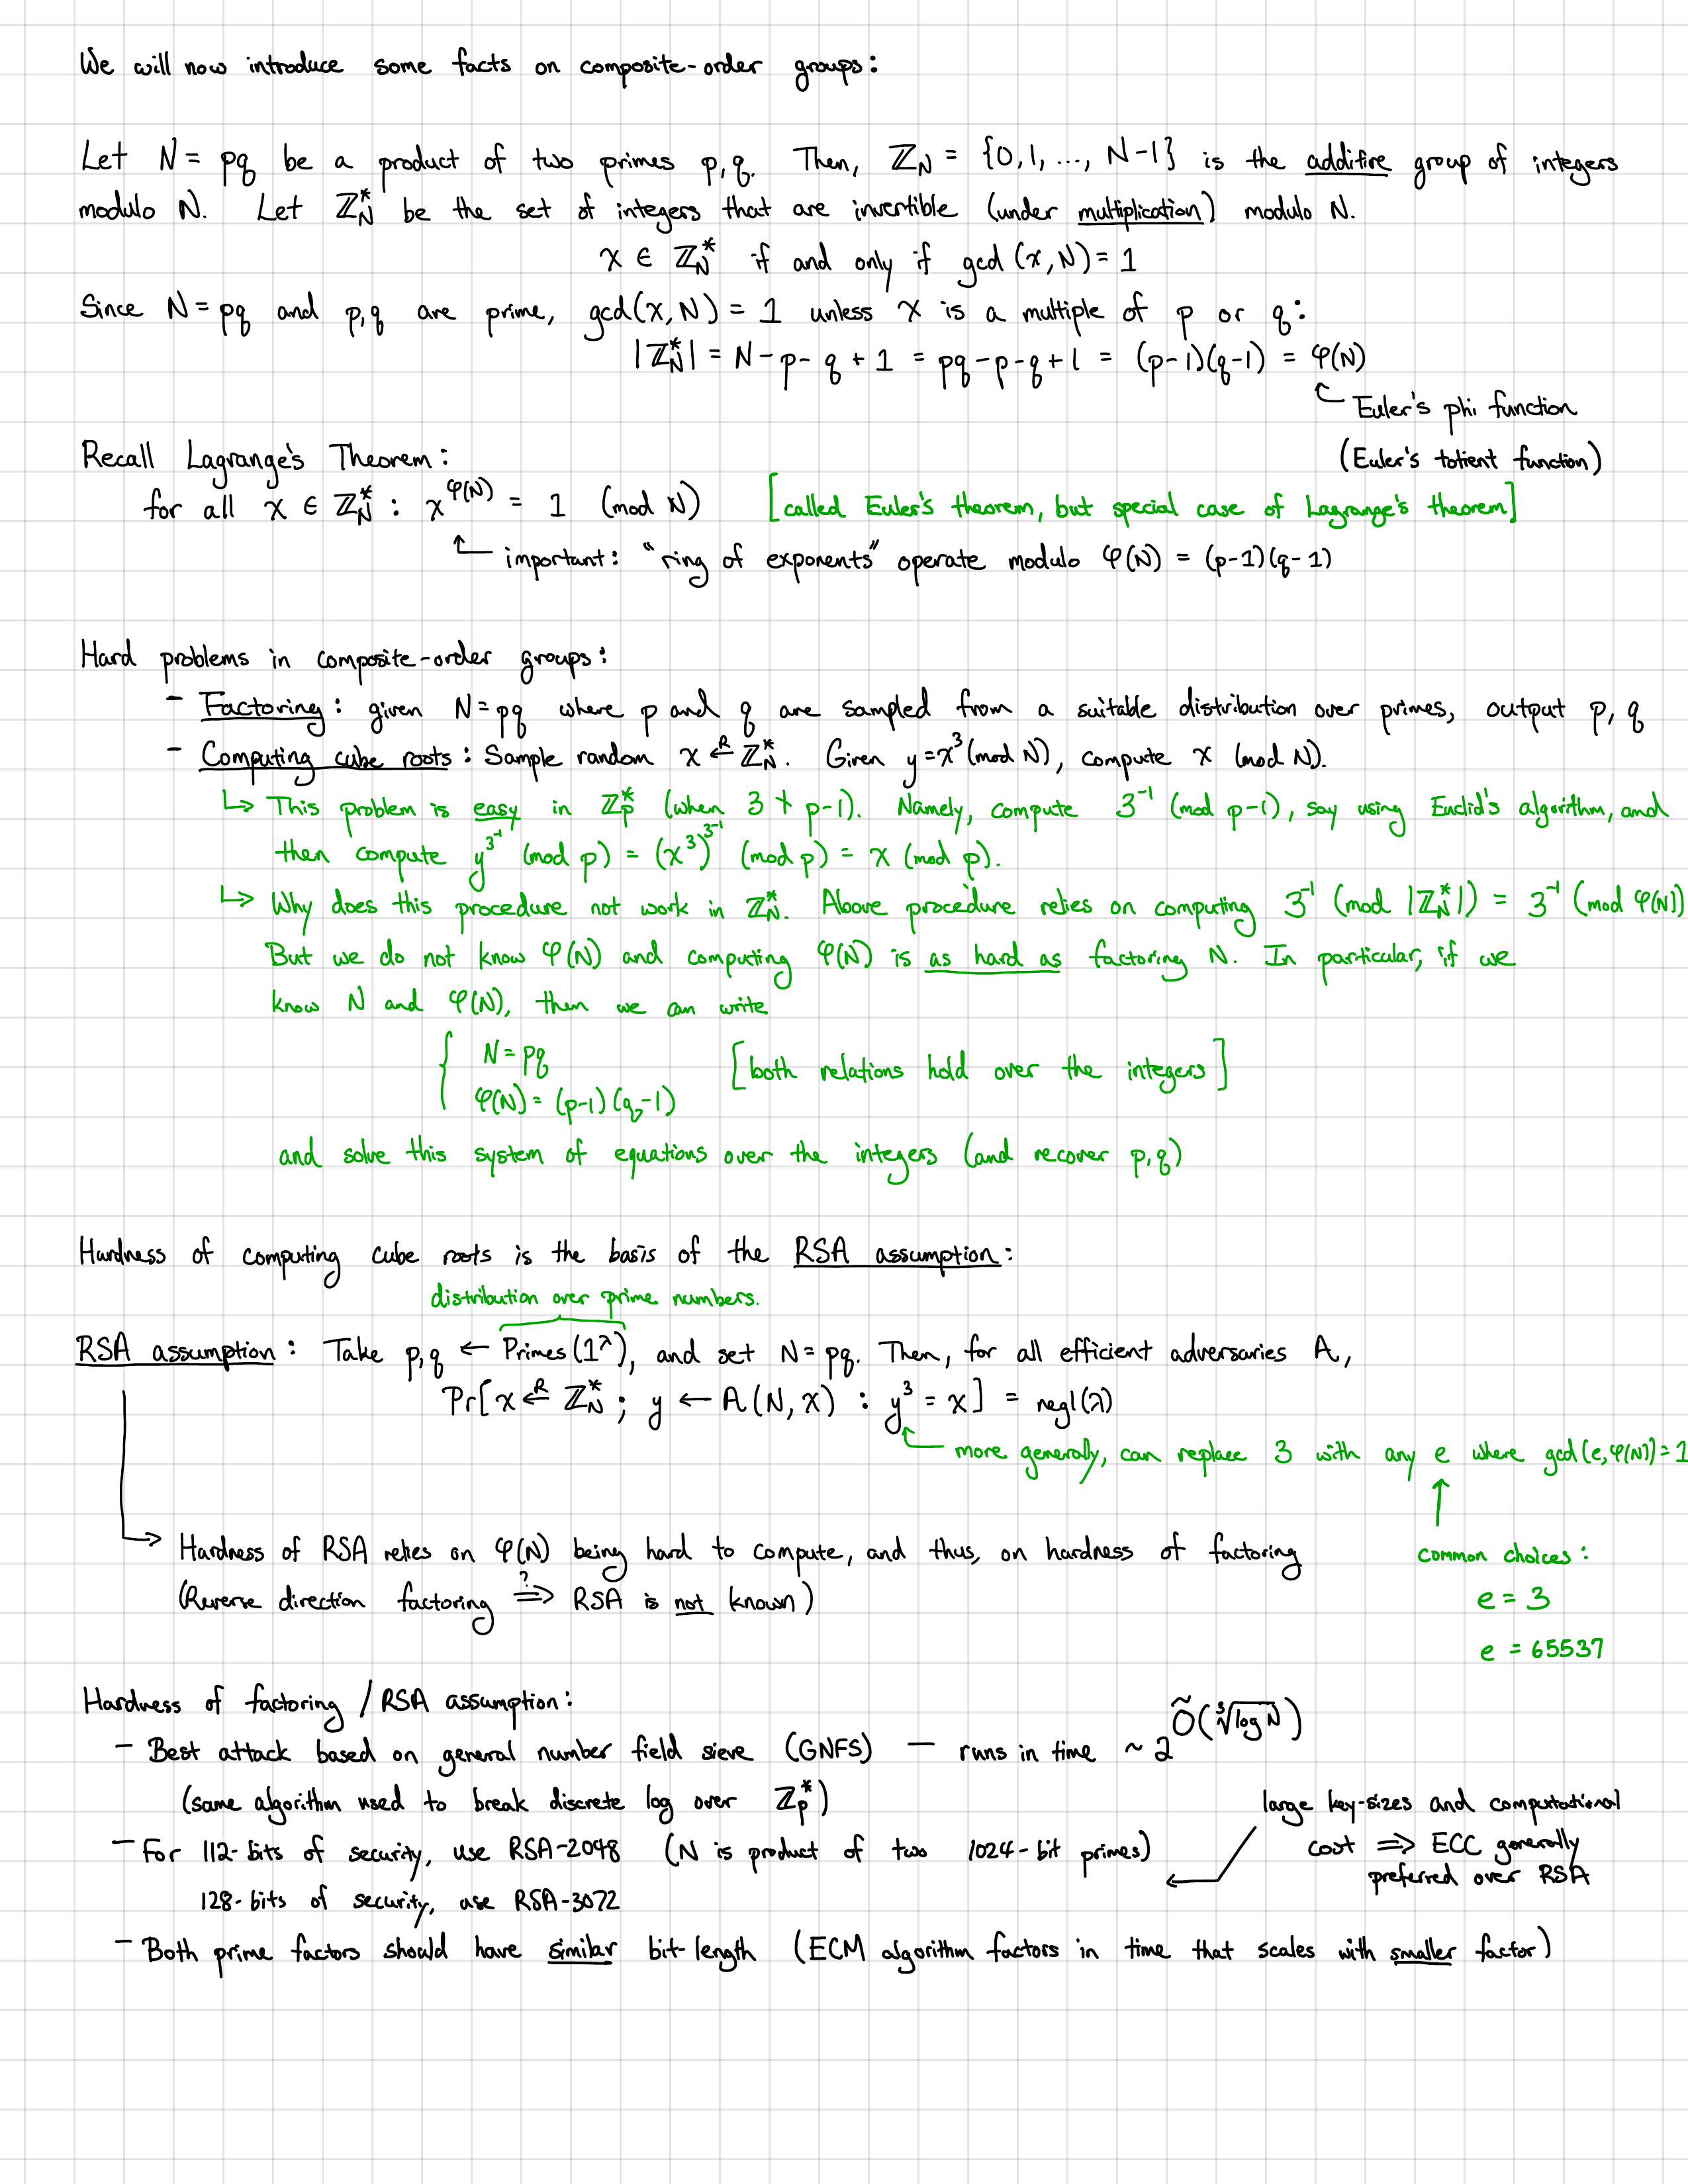 We will now introduce some facts on composite-order groups:
Let N = pq be a product of two primes p, q. Then, ℤ_N = {0, 1, ..., N-1} is the additive group of integers
modulo N. Let ℤ_N^* be the set of integers that are invertible (under multiplication) modulo N.
x ∈ ℤ_N^* if and only if gcd(x, N) = 1
Since N = pq and p, q are prime, gcd(x, N) = 1 unless x is a multiple of p or q:
|ℤ_N^*| = N - p - q + 1 = pq - p - q + 1 = (p-1)(q-1) = φ(N)
Euler's phi function
(Euler's totient function)
Recall Lagrange's Theorem:
for all x ∈ ℤ_N^* : x^{φ(N)} = 1 (mod N) [called Euler's theorem, but special case of Lagrange's theorem]
important: "ring of exponents" operate modulo φ(N) = (p-1)(q-1)
Hard problems in composite-order groups:
- Factoring: given N = pq where p and q are sampled from a suitable distribution over primes, output p, q
- Computing cube roots: Sample random x ←^R ℤ_N^*. Given y = x^3 (mod N), compute x (mod N).
↳ This problem is easy in ℤ_p^* (when 3 ∤ p-1). Namely, compute 3^{-1} (mod p-1), say using Euclid's algorithm, and
then compute y^{3^{-1}} (mod p) = (x^3)^{3^{-1}} (mod p) = x (mod p).
↳ Why does this procedure not work in ℤ_N^*. Above procedure relies on computing 3^{-1} (mod |ℤ_N^*|) = 3^{-1} (mod φ(N))
But we do not know φ(N) and computing φ(N) is as hard as factoring N. In particular, if we
know N and φ(N), then we can write
N = pq
φ(N) = (p-1)(q-1)
[both relations hold over the integers]
and solve this system of equations over the integers (and recover p, q)
Hardness of computing cube roots is the basis of the RSA assumption:
distribution over prime numbers.
RSA assumption: Take p, q ← Primes(1^λ), and set N = pq. Then, for all efficient adversaries A,
Pr[x ←^R ℤ_N^*; y ← A(N, x) : y^3 = x] = negl(λ)
more generally, can replace 3 with any e where gcd(e, φ(N)) = 1
↳ Hardness of RSA relies on φ(N) being hard to compute, and thus, on hardness of factoring
(Reverse direction factoring ⟹^? RSA is not known)
common choices:
e = 3
e = 65537
Hardness of factoring / RSA assumption:
- Best attack based on general number field sieve (GNFS) — runs in time ~ 2^{Õ(∛log N)}
(same algorithm used to break discrete log over ℤ_p^*)
- For 112-bits of security, use RSA-2048 (N is product of two 1024-bit primes)
128-bits of security, use RSA-3072
large key-sizes and computational
cost ⟹ ECC generally
preferred over RSA
- Both prime factors should have similar bit-length (ECM algorithm factors in time that scales with smaller factor)